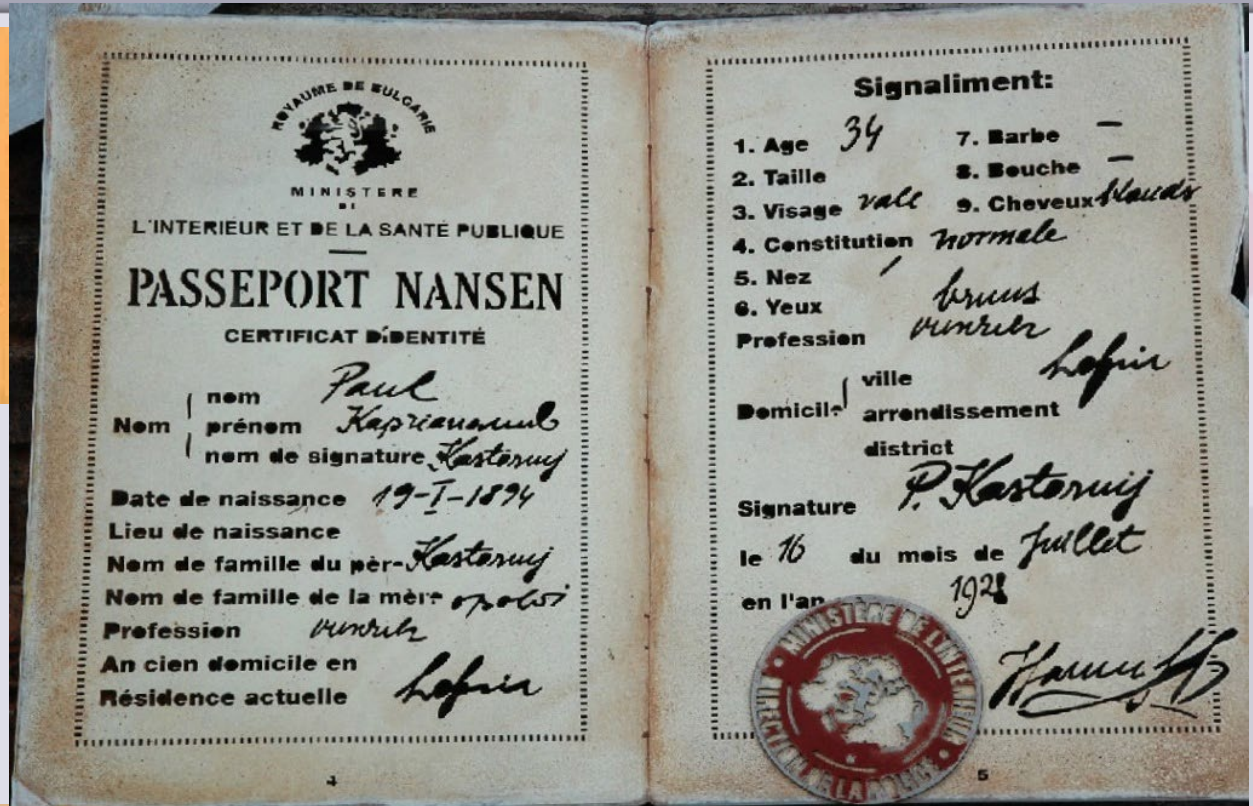 ROYAUME DE BULGARIE
MINISTERE
DE
L'INTERIEUR ET DE LA SANTÉ PUBLIQUE
PASSEPORT NANSEN
CERTIFICAT D'IDENTITÉ
Nom
nom Paul
prénom
nom de signature Kastornij
Date de naissance 19-I-1894
Lieu de naissance
Nom de famille du pèr- Kastornij
Nom de famille de la mère
Profession
An cien domicile en
Résidence actuelle
4
Signaliment:
1. Age 34
2. Taille
3. Visage vale
4. Constitution normale
5. Nez /
6. Yeux bruns
7. Barbe –
8. Bouche –
9. Cheveux blonds
Profession
Domicile
ville
arrondissement
district
Signature P. Kastornij
le 16 du mois de Juillet
en l'an 1928
MINISTÈRE DE L'INTERIEUR
DE LA POLICE
5